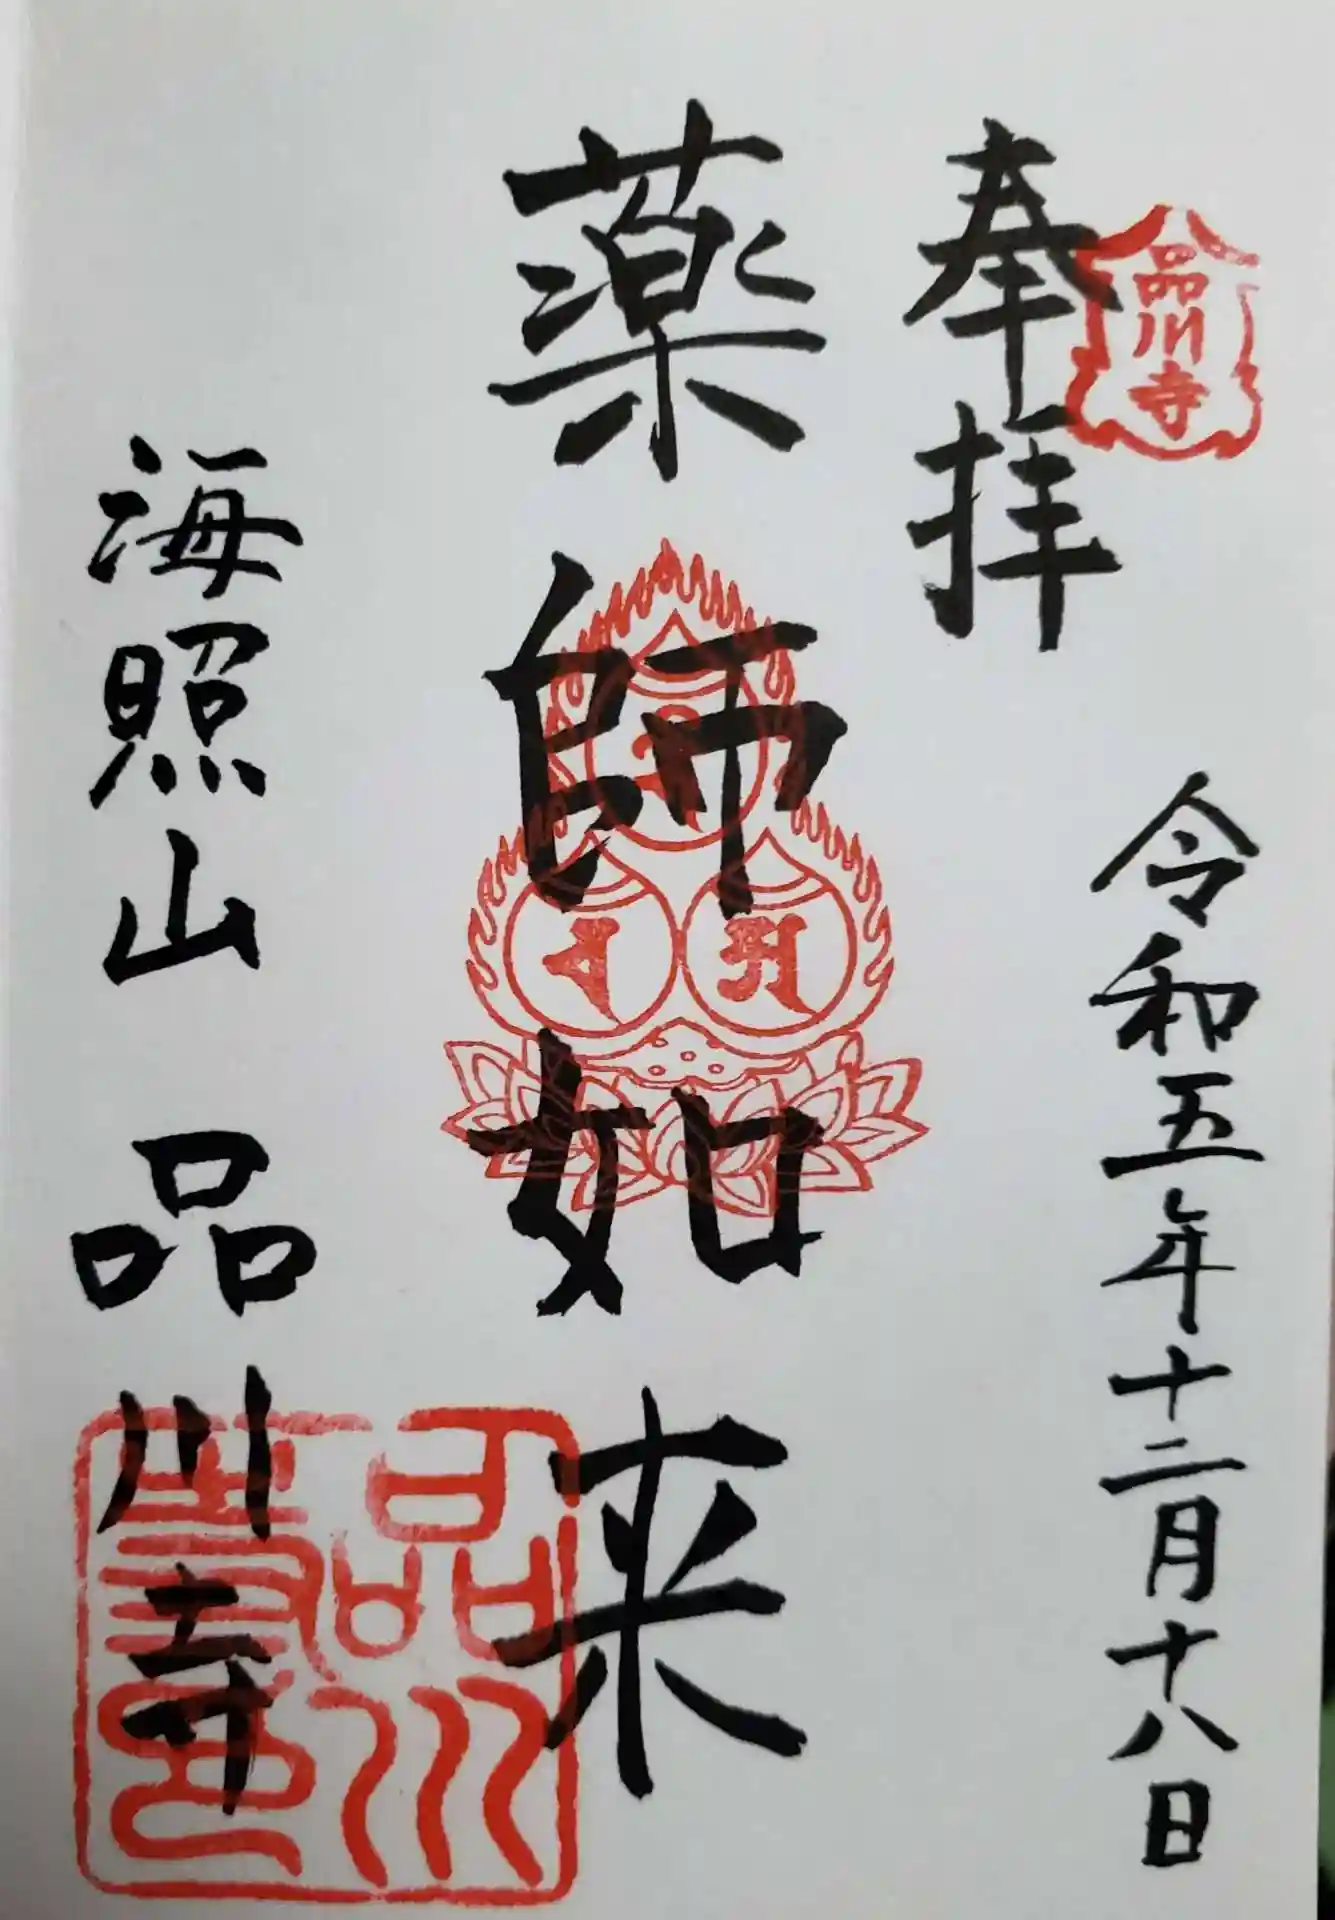 奉拝
品川寺
令和五年十二月十八日
薬師如来
海照山 品川寺
品川寺印